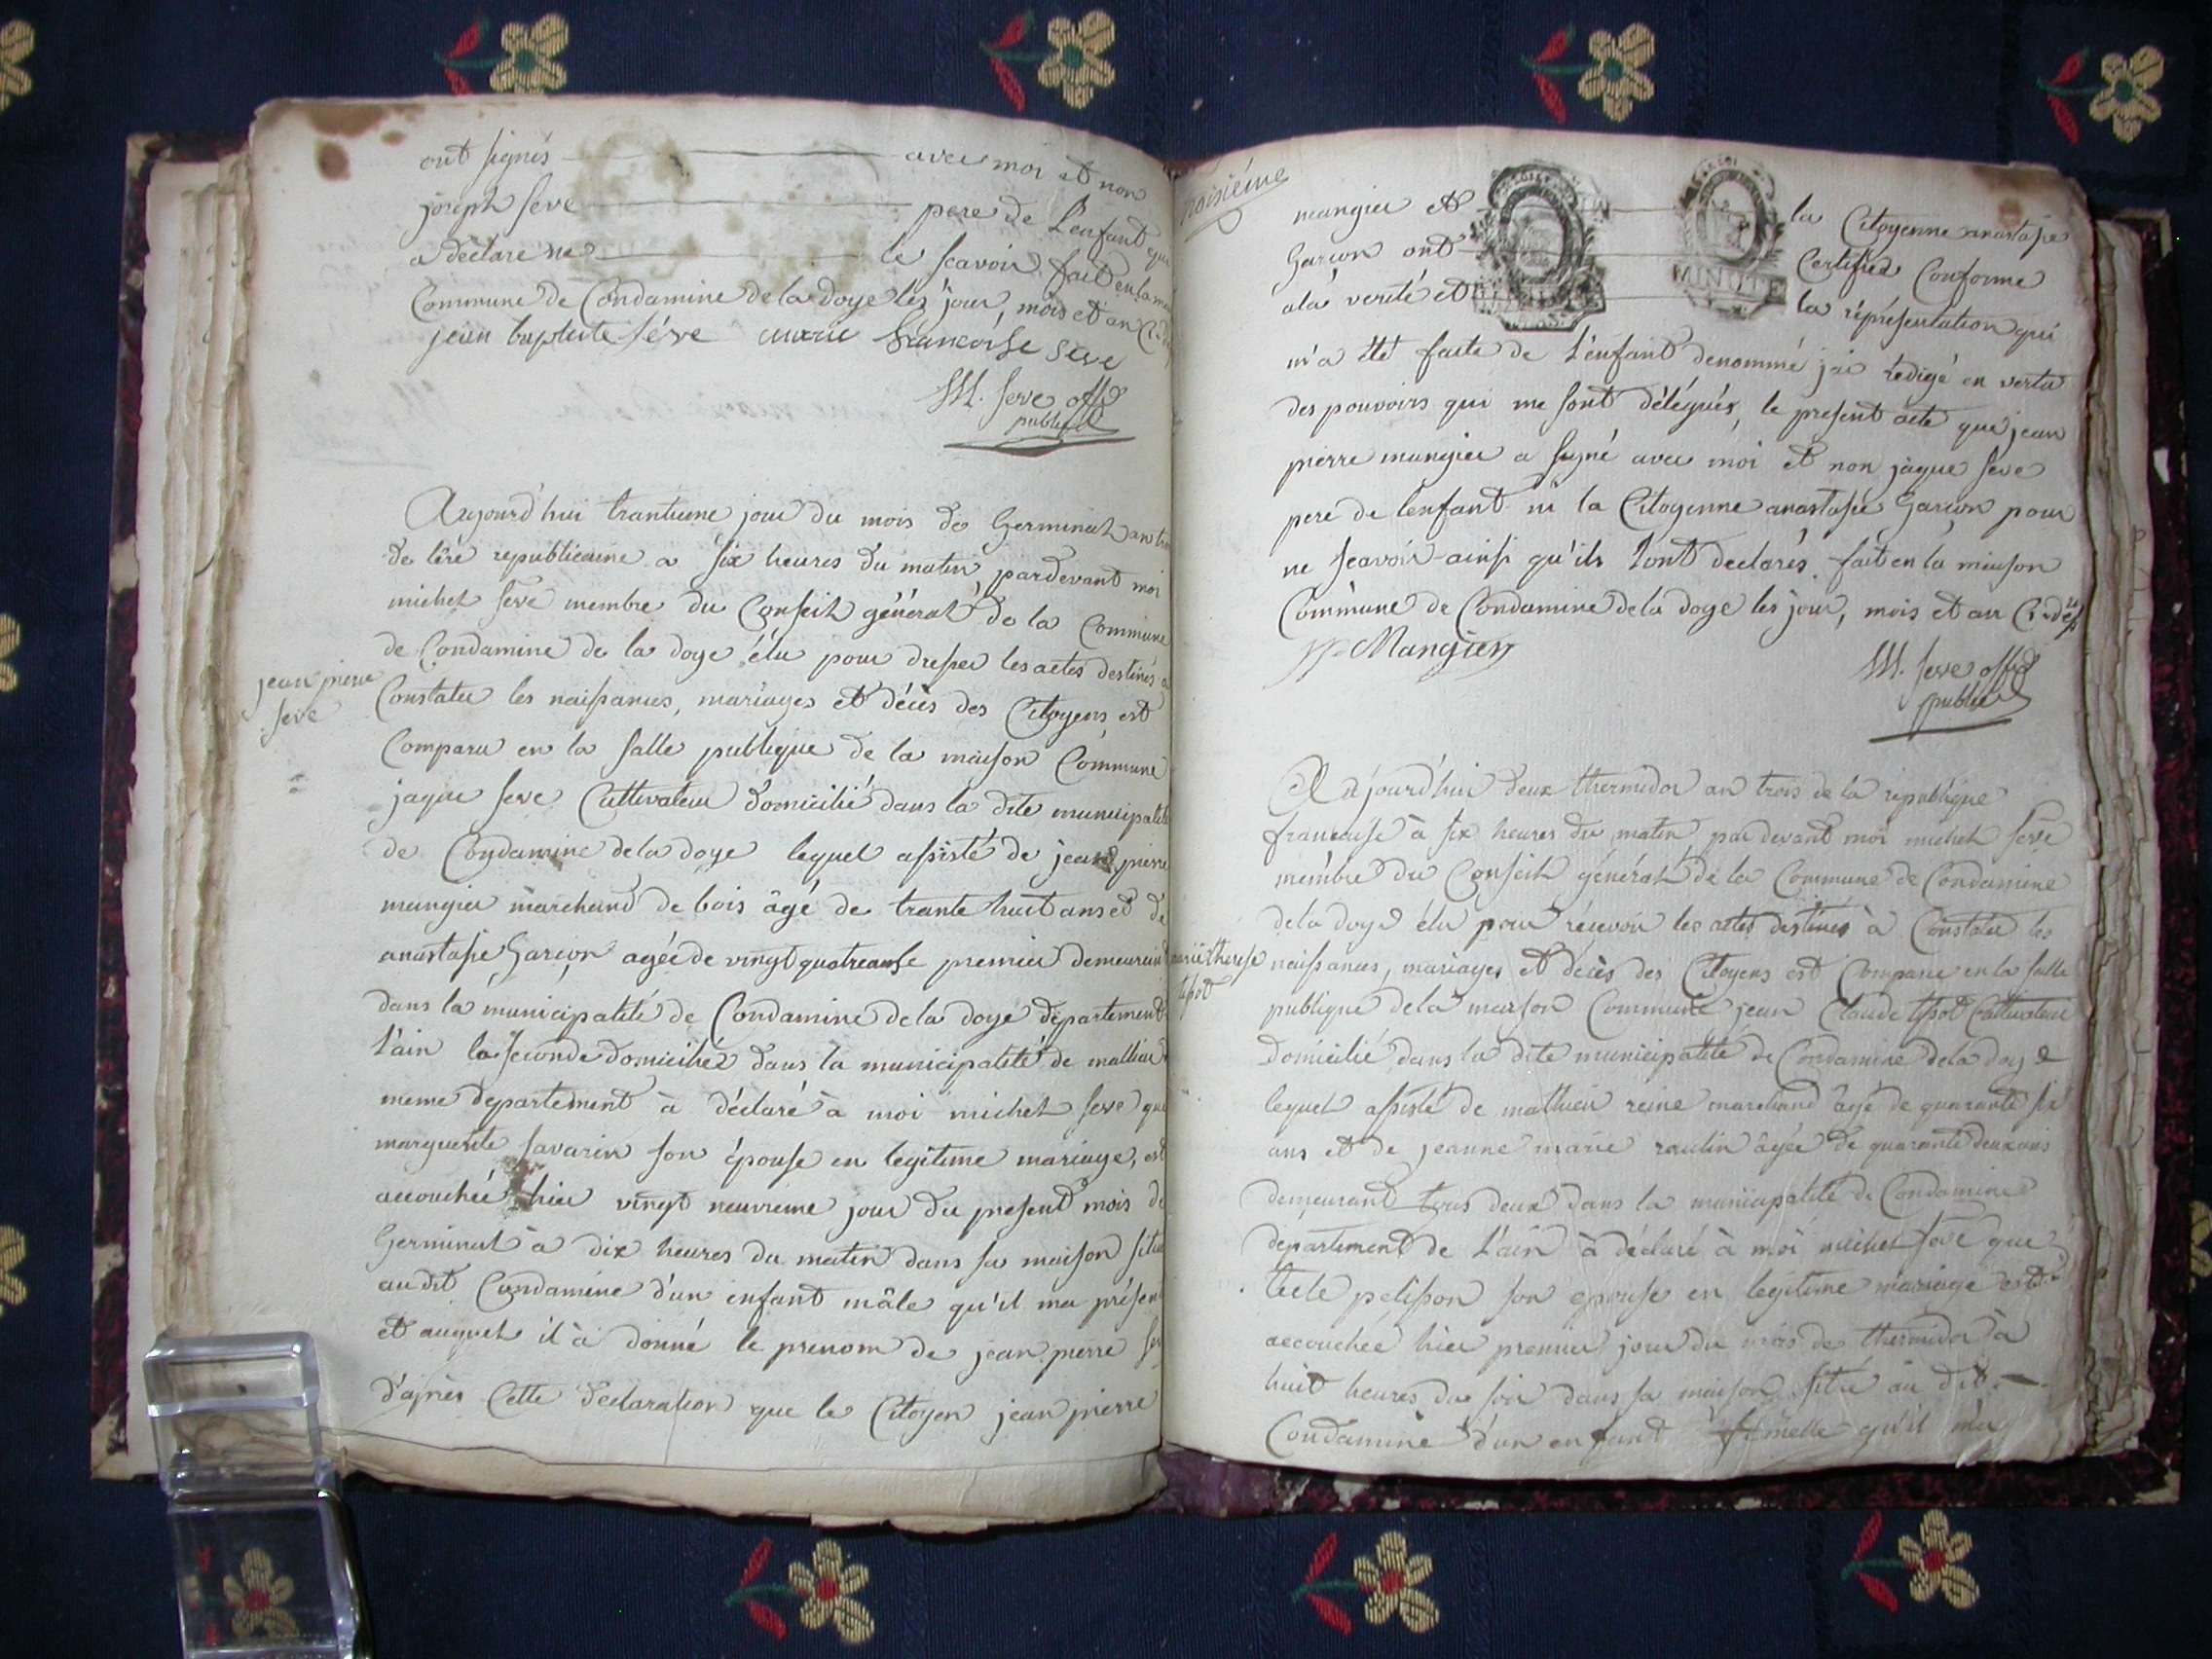 ont signés avec moi et non
joseph seve pere de l'enfant qui
a déclaré ne le scavoir fait en la
Commune de Condamine de la doye les jour, mois et an
jean baptiste séve marie francoise seve
M. seve offi
public
Aujourd'hui trantieme jour du mois de Germinal an
de lère republicaine a six heures du matin, pardevant moi
michel seve membre du Conseil général de la Commune
de Condamine de la doye élu pour dresser les actes destinés a
jean pierre
seve
Constater les naissances, mariages et décès des Citoyens est
Comparu en la salle publique de la maison Commune
jaque seve Cultivateur domicilié dans la dite municipalité
de Condamine de la doye lequel assisté de jean pierre
mangier marchand de bois âgé de trante huit ans et de
anastasie Garçon agée de vingt quatre ans le premier demeurant
dans la municipalité de Condamine de la doye département
l'ain la seconde domiciliée dans la municipalité de
meme departement à déclaré à moi michel seve que
marguerite savarin son épouse en legitime mariage, est
accouchée hier vingt neuvieme jour du present mois de
Germinal à dix heures du matin dans sa maison située
audit Condamine d'un enfant mâle qu'il ma présenté
et auquel il à donné le prenom de jean pierre
d'après Cette declaration que le Citoyen jean pierre
troisiéme
mangier et la Citoyenne anastasie
Garcon ont Certifiés Conforme
a la verité et la réprésentation qui
MINUTE
m'a été faite de l'enfant denommé jai redigé en vertu
des pouvoirs qui me sont délégués, le present acte que jean
pierre mangier a signé avec moi et non jaque seve
pere de lenfant ni la Citoyenne anastasie Garçon pour
ne scavoir ainsi qu'ils l'ont declarés. fait en la maison
Commune de Condamine de la doye les jour, mois et an
Mangier
M. seve offi
public
Aujourd'hui deux thermidor an trois de la république
francaise à six heures du matin par devant moi michel seve
membre du Conseil général de la Commune de Condamine
de la doye élu pour récevoir les actes destinés à Constater les
marie therese
tissot
naissances, mariages et décès des Citoyens est Comparu en la salle
publique de la maison Commune jean Claude tissot Cultivateur
Domicilié dans la dite municipalité de Condamine de la doye
lequel assisté de mathieu reine marchand âgé de quarante six
ans et de jeanne marie âgée de quarante deux ans
demeurant tous deux dans la municipalité de Condamine
département de l'ain à déclaré à moi michel seve que
pelisson son epouse en legitime mariage est
accouchée hier premier jour du mois de thermidor à
huit heures du soir dans sa maison située au dit
Condamine d'un enfant femelle qu'il m'a